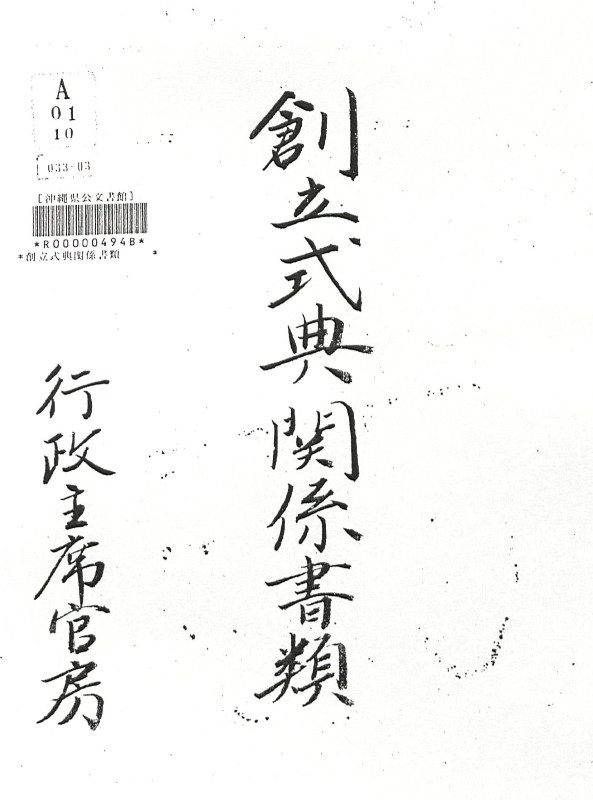 A
01
10
033-03
[沖縄県公文書館]
*R00000494B*
*創立式典関係書類 *
創立式典関係書類
行政主席官房